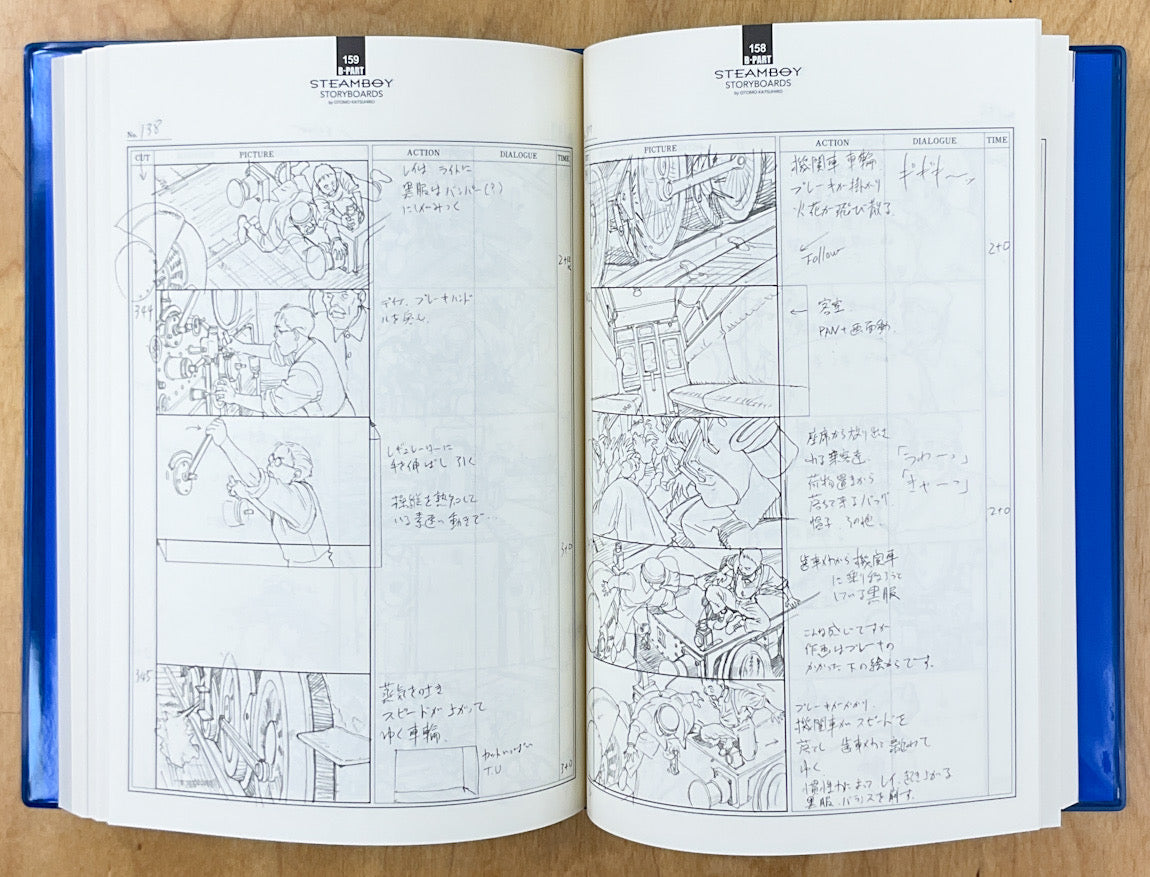 158
B-PART
STEAMBOY
STORYBOARDS
by OTOMO KATSUHIRO
PICTURE
ACTION
DIALOGUE
TIME
機関車 車輪
ブレーキが掛かり
火花が飛び散る
ギギギ〜ッ
Follow
2+0
客室
PAN+画面動
座席から放り出さ
れる乗客達
荷物置きから
落ちて来るバッグ
帽子 その他
「うわーっ」
「きゃーっ」
2+0
歯車メカから機関車
に乗り移ろうと
している黒服
こんな感じですが
作画はブレーキの
かかった下の絵からです。
ブレーキがかかり、
機関車がスピードを
落とし 歯車メカと離れて
ゆく
慣性によって レイ、起き上がる
黒服、バランスを崩す。
159
B-PART
STEAMBOY
STORYBOARDS
by OTOMO KATSUHIRO
No. 138
CUT
PICTURE
ACTION
DIALOGUE
TIME
レイは ライトに
黒服はバンパー(?)
にしがみつく
344
ブレーキハンド
ルを戻し
レギュレーターに
手を伸ばし 引く
操縦を熟知して
いる素速い動きで…
3+0
345
蒸気を吐き
スピードが上がって
ゆく車輪
カットいっぱい
T.U
3+0